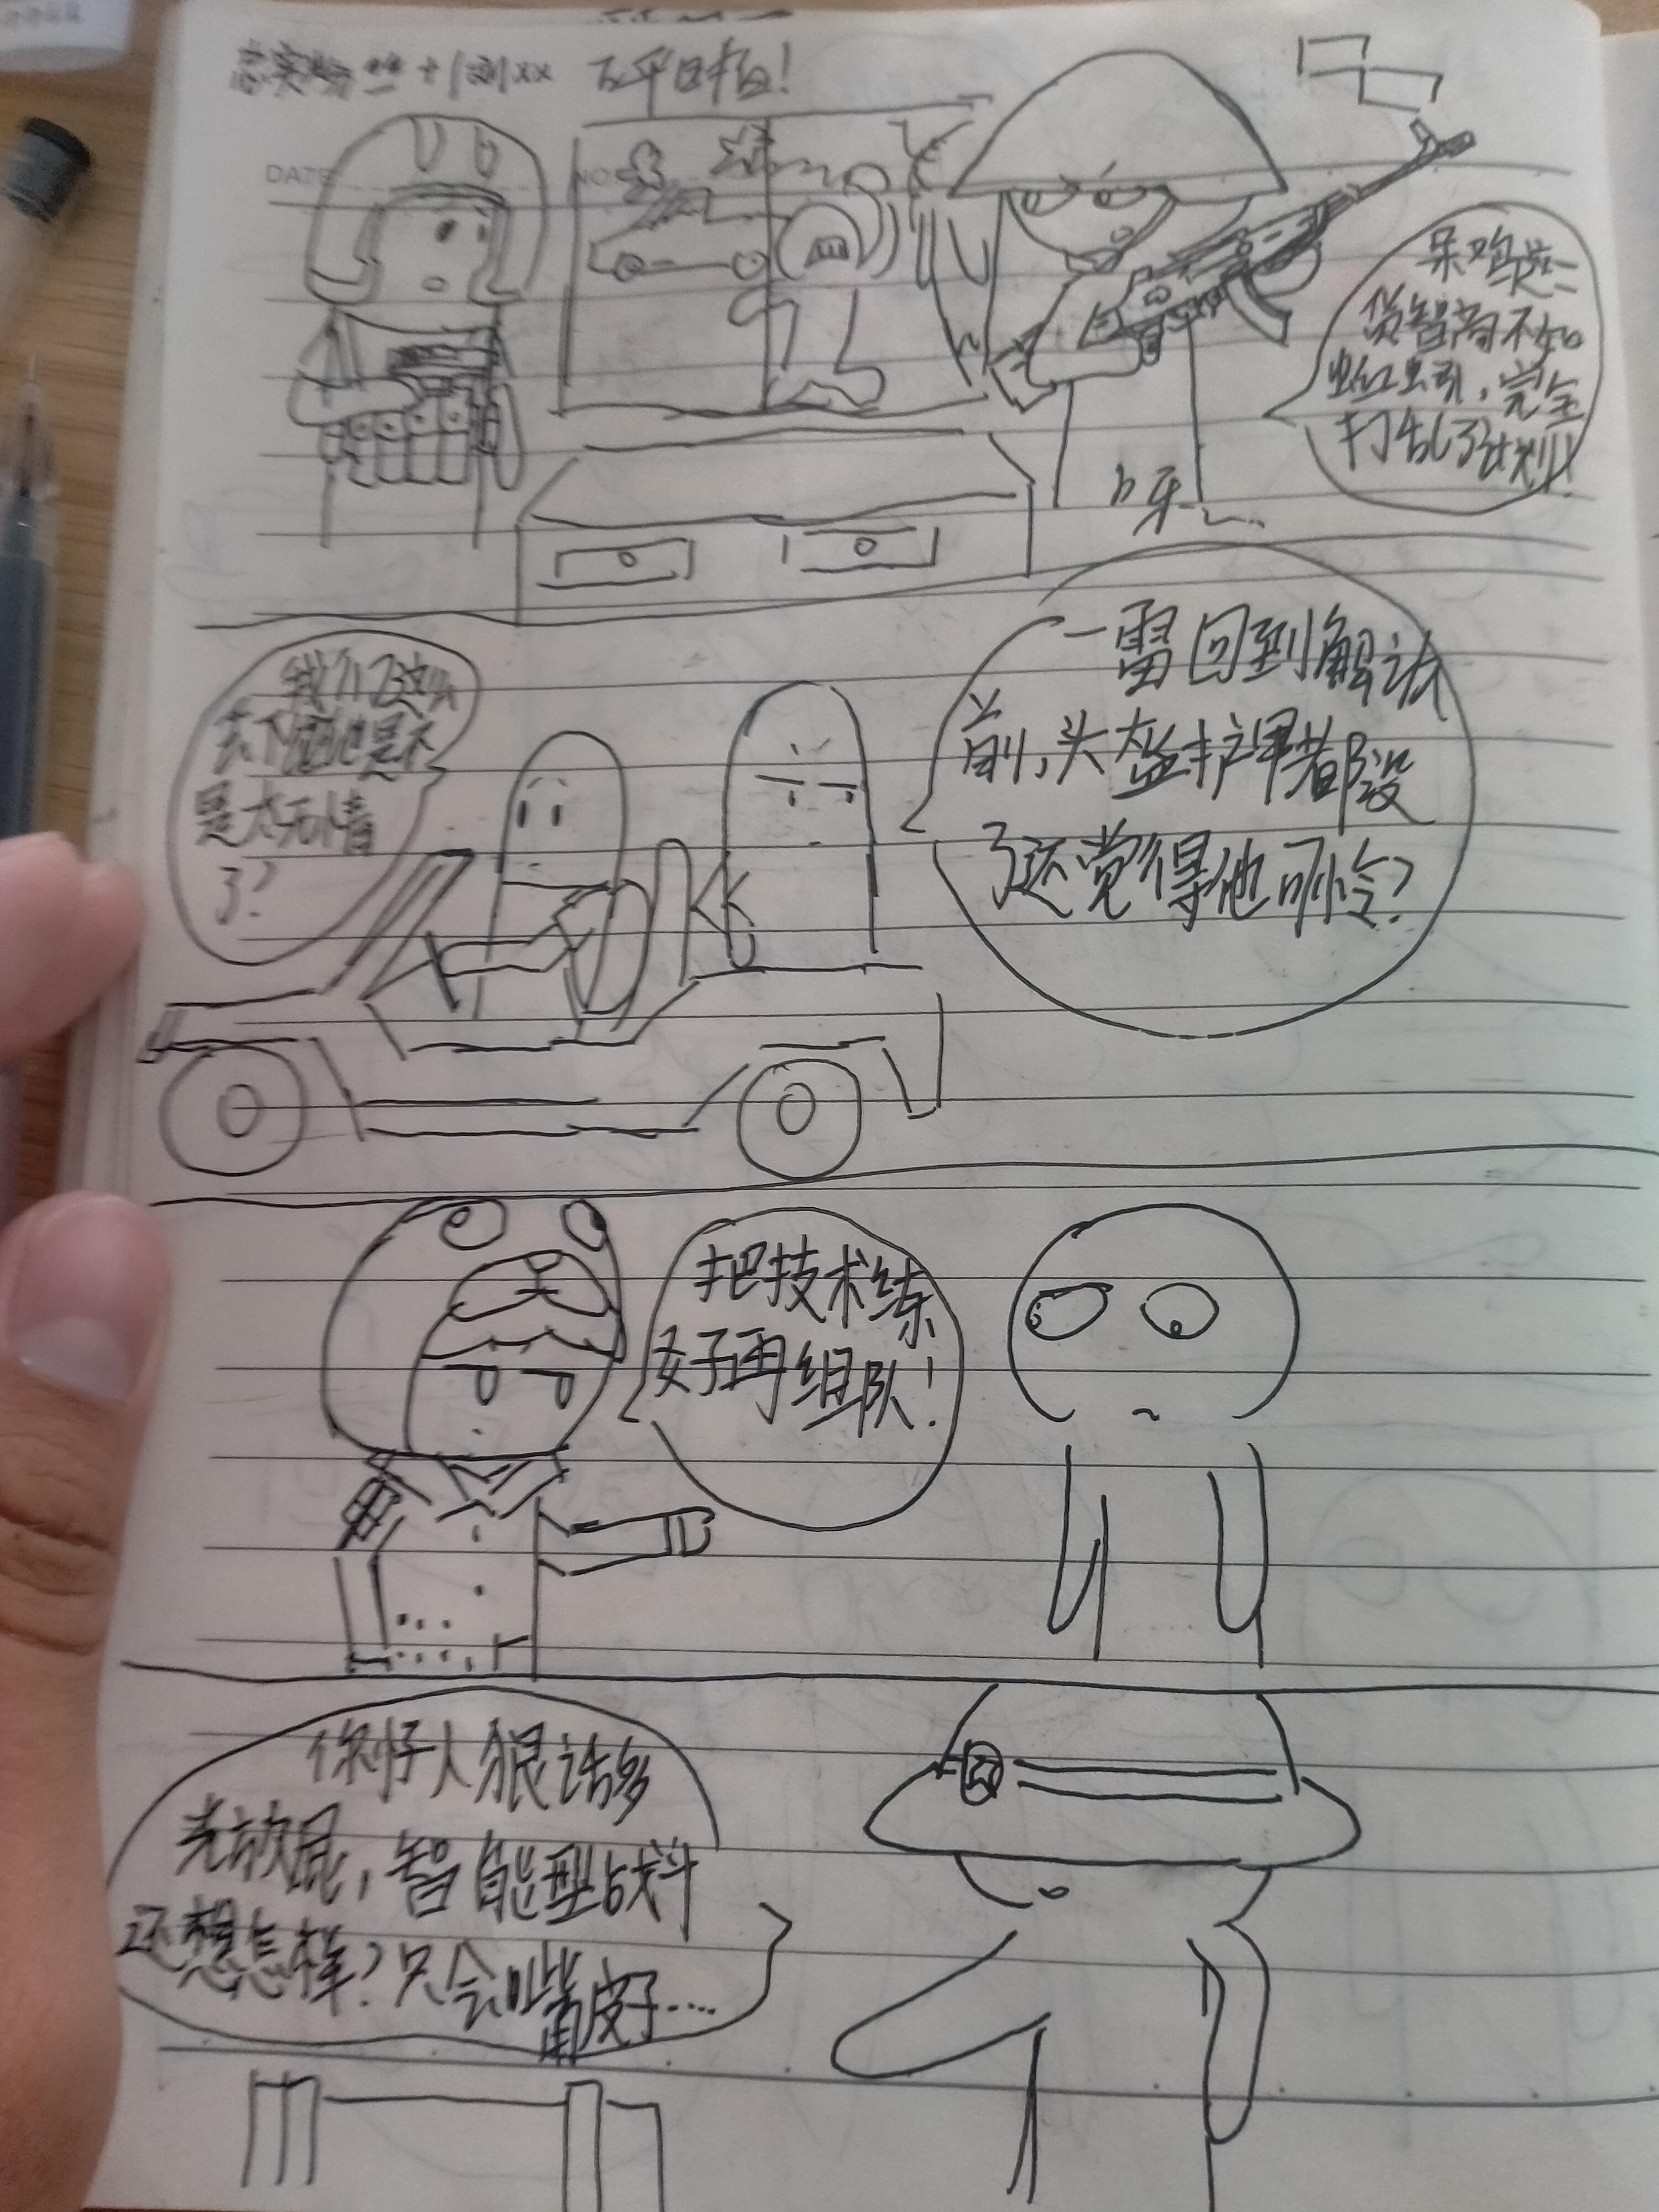 忠实粉丝+1刘xx 百平日报!
DATE
NO
呆鸡这二
货智商不如
蚯蚓,完全
打乱了计划!
呀~...
我们这么
去下 他是不
是太无情
了?
一雷回到解放
前,头盔护甲都没
了还觉得他可怜?
把技术练
好再组队!
你好人狠话多
老放屁,智能型战斗
还想怎样?只会嘴皮子....